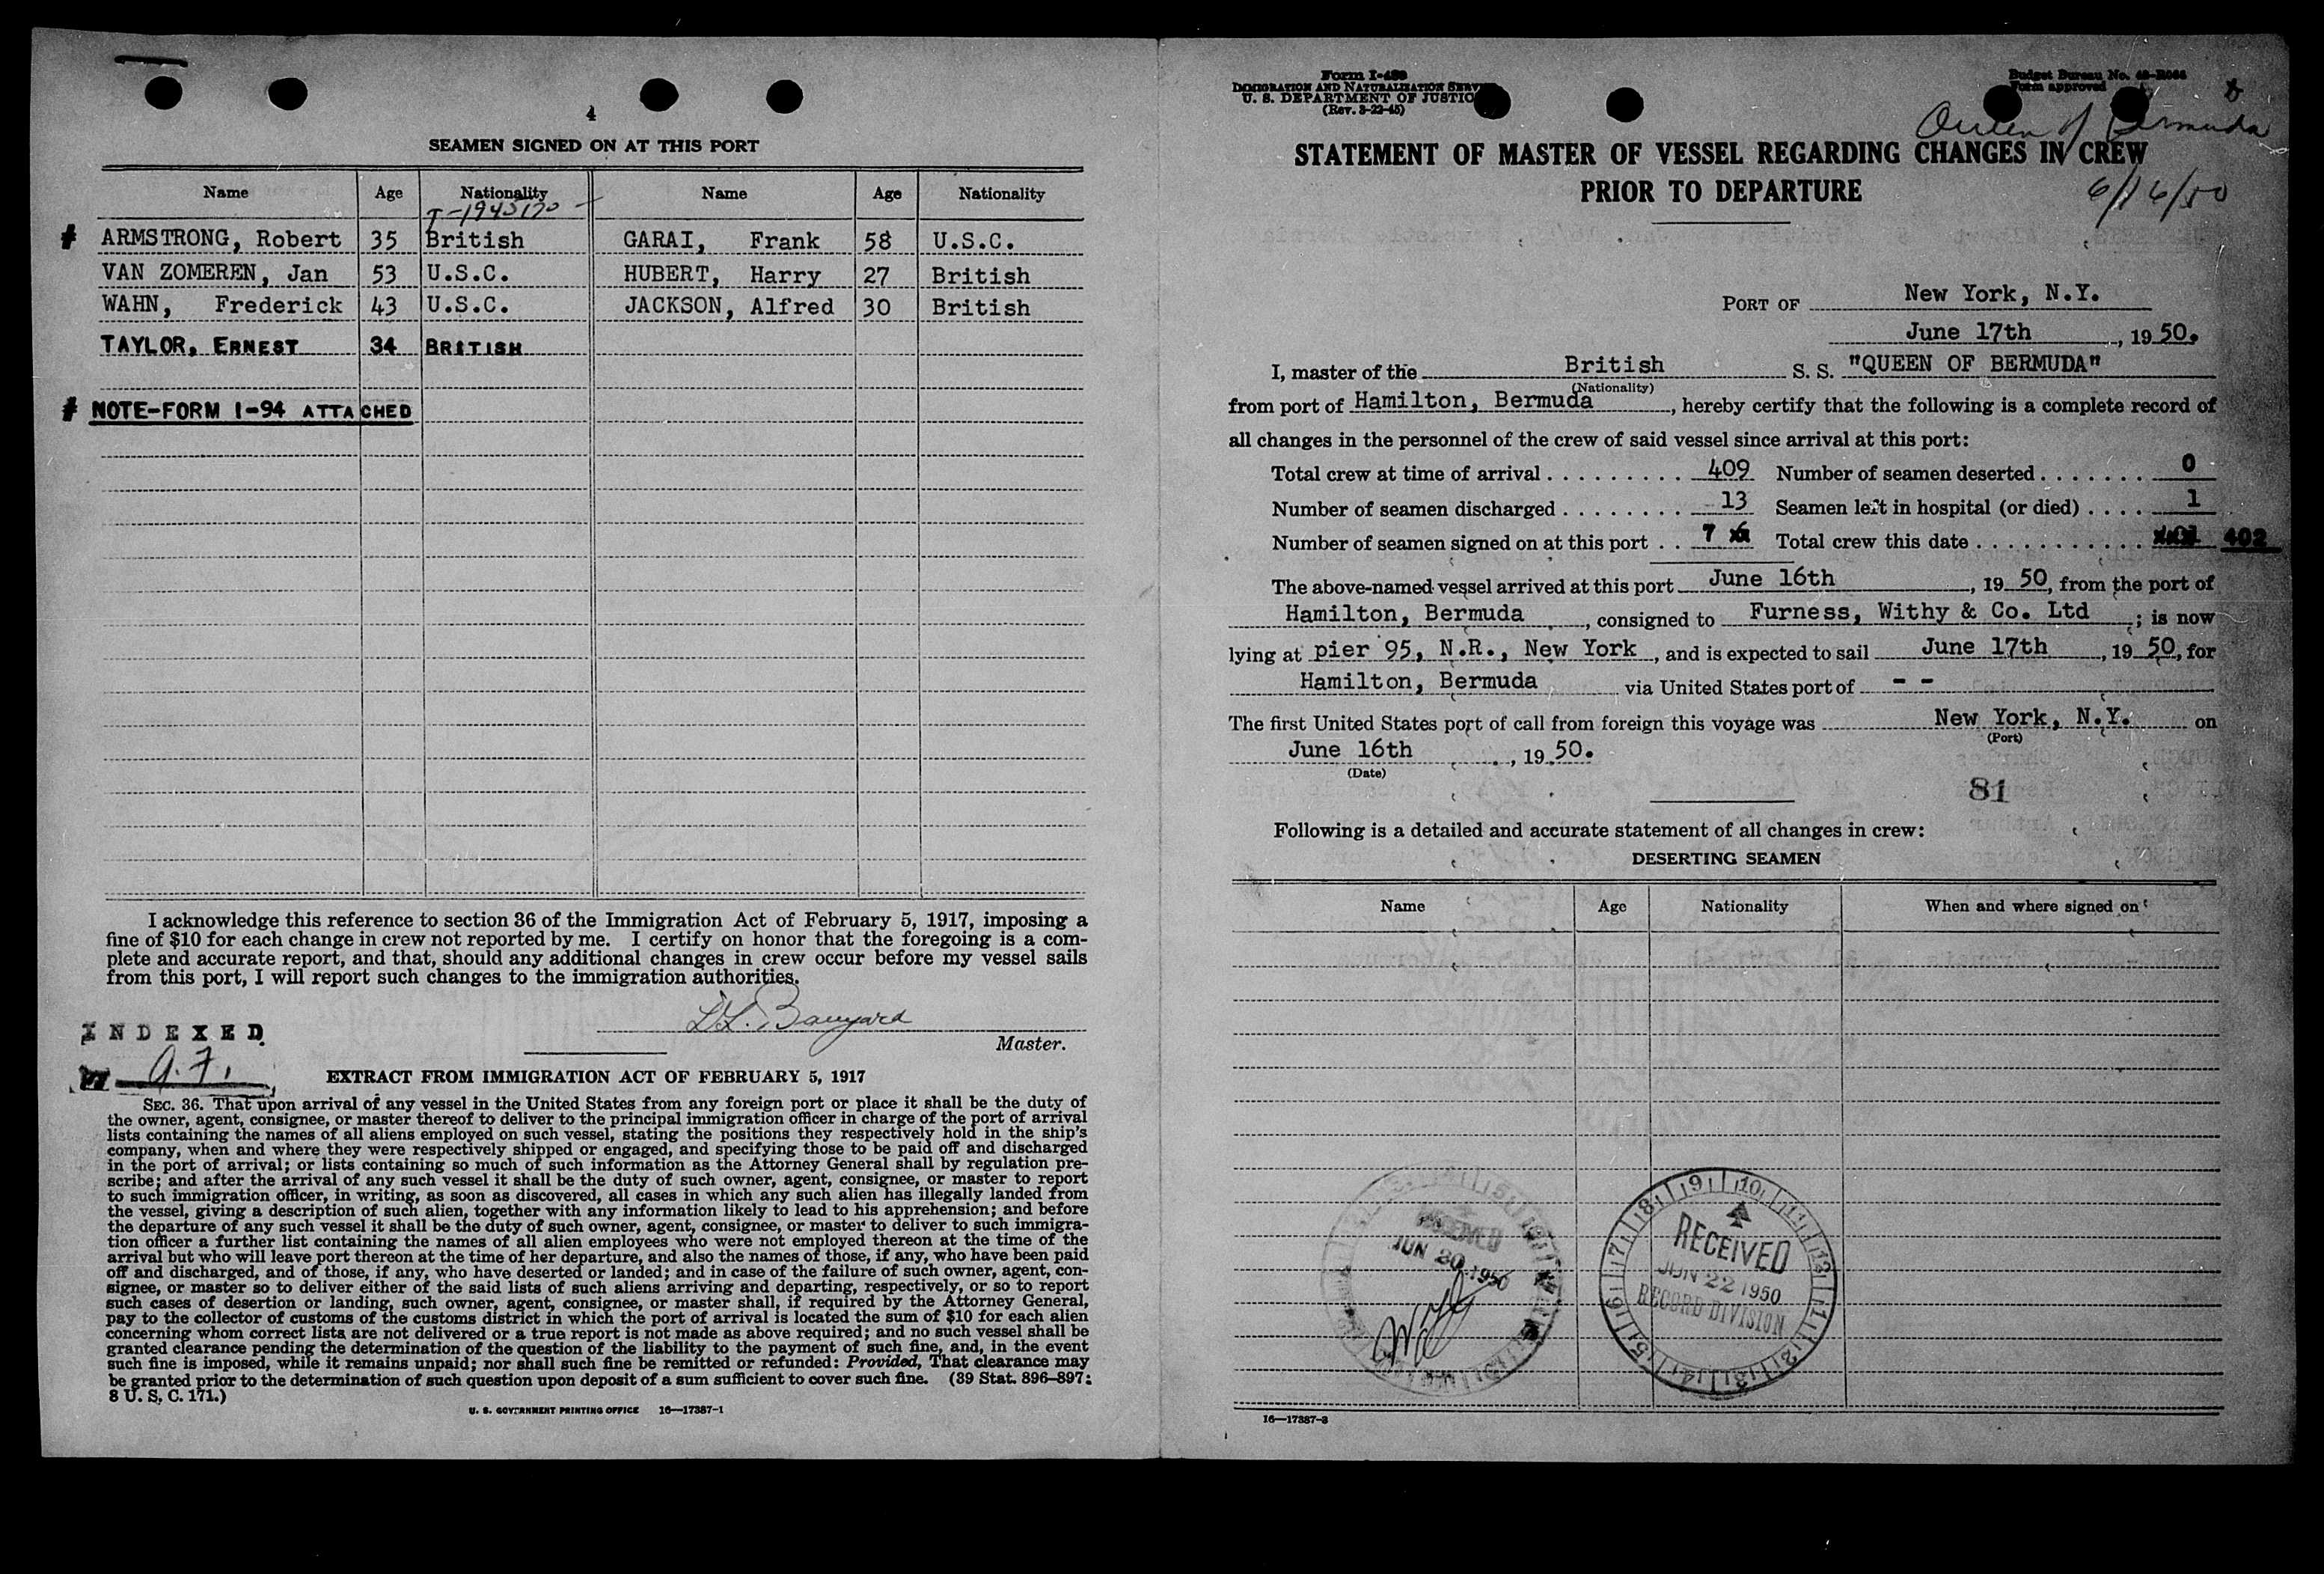 4
SEAMEN SIGNED ON AT THIS PORT
Name Age Nationality Name Age Nationality
# ARMSTRONG, Robert 35 British GARAI, Frank 58 U.S.C.
VAN ZOMEREN, Jan 53 U.S.C. HUBERT, Harry 27 British
WAHN, Frederick 43 U.S.C. JACKSON, Alfred 30 British
TAYLOR, ERNEST 34 BRITISH
# NOTE-FORM I-94 ATTACHED
I acknowledge this reference to section 36 of the Immigration Act of February 5, 1917, imposing a
fine of $10 for each change in crew not reported by me. I certify on honor that the foregoing is a com-
plete and accurate report, and that, should any additional changes in crew occur before my vessel sails
from this port, I will report such changes to the immigration authorities.
Master.
INDEXED
A.F.
EXTRACT FROM IMMIGRATION ACT OF FEBRUARY 5, 1917
SEC. 36. That upon arrival of any vessel in the United States from any foreign port or place it shall be the duty of
the owner, agent, consignee, or master thereof to deliver to the principal immigration officer in charge of the port of arrival
lists containing the names of all aliens employed on such vessel, stating the positions they respectively hold in the ship's
company, when and where they were respectively shipped or engaged, and specifying those to be paid off and discharged
in the port of arrival; or lists containing so much of such information as the Attorney General shall by regulation pre-
scribe; and after the arrival of any such vessel it shall be the duty of such owner, agent, consignee, or master to report
to such immigration officer, in writing, as soon as discovered, all cases in which any such alien has illegally landed from
the vessel, giving a description of such alien, together with any information likely to lead to his apprehension; and before
the departure of any such vessel it shall be the duty of such owner, agent, consignee, or master to deliver to such immigra-
tion officer a further list containing the names of all alien employees who were not employed thereon at the time of the
arrival but who will leave port thereon at the time of her departure, and also the names of those, if any, who have been paid
off and discharged, and of those, if any, who have deserted or landed; and in case of the failure of such owner, agent, con-
signee, or master so to deliver either of the said lists of such aliens arriving and departing, respectively, or so to report
such cases of desertion or landing, such owner, agent, consignee, or master shall, if required by the Attorney General,
pay to the collector of customs of the customs district in which the port of arrival is located the sum of $10 for each alien
concerning whom correct lists are not delivered or a true report is not made as above required; and no such vessel shall be
granted clearance pending the determination of the question of the liability to the payment of such fine, and, in the event
such fine is imposed, while it remains unpaid; nor shall such fine be remitted or refunded: Provided, That clearance may
be granted prior to the determination of such question upon deposit of a sum sufficient to cover such fine. (39 Stat. 896-897;
8 U. S. C. 171.)
U. S. GOVERNMENT PRINTING OFFICE 16—17387-1
Form I-489
IMMIGRATION AND NATURALIZATION SERV
U. S. DEPARTMENT OF JUSTIC
(Rev. 3-22-45)
Budget Bureau No.
Form approved
Queen of Bermuda
STATEMENT OF MASTER OF VESSEL REGARDING CHANGES IN CREW
PRIOR TO DEPARTURE
6/16/50
PORT OF New York, N.Y.
June 17th, 19 50.
I, master of the British S. S. "QUEEN OF BERMUDA"
(Nationality)
from port of Hamilton, Bermuda, hereby certify that the following is a complete record of
all changes in the personnel of the crew of said vessel since arrival at this port:
Total crew at time of arrival . . . . . . . . . 409 Number of seamen deserted . . . . . . . 0
Number of seamen discharged . . . . . . . . 13 Seamen left in hospital (or died) . . . . 1
Number of seamen signed on at this port . . 7 Total crew this date . . . . . . . . . . . 402
The above-named vessel arrived at this port June 16th, 19 50, from the port of
Hamilton, Bermuda, consigned to Furness, Withy & Co. Ltd; is now
lying at pier 95, N.R., New York, and is expected to sail June 17th, 19 50, for
Hamilton, Bermuda via United States port of - -
The first United States port of call from foreign this voyage was New York, N.Y. on
(Port)
June 16th, 19 50.
(Date)
81
Following is a detailed and accurate statement of all changes in crew:
DESERTING SEAMEN
Name Age Nationality When and where signed on
RECEIVED
JUN 20 1950
RECEIVED
JUN 22 1950
RECORD DIVISION
16—17387-3